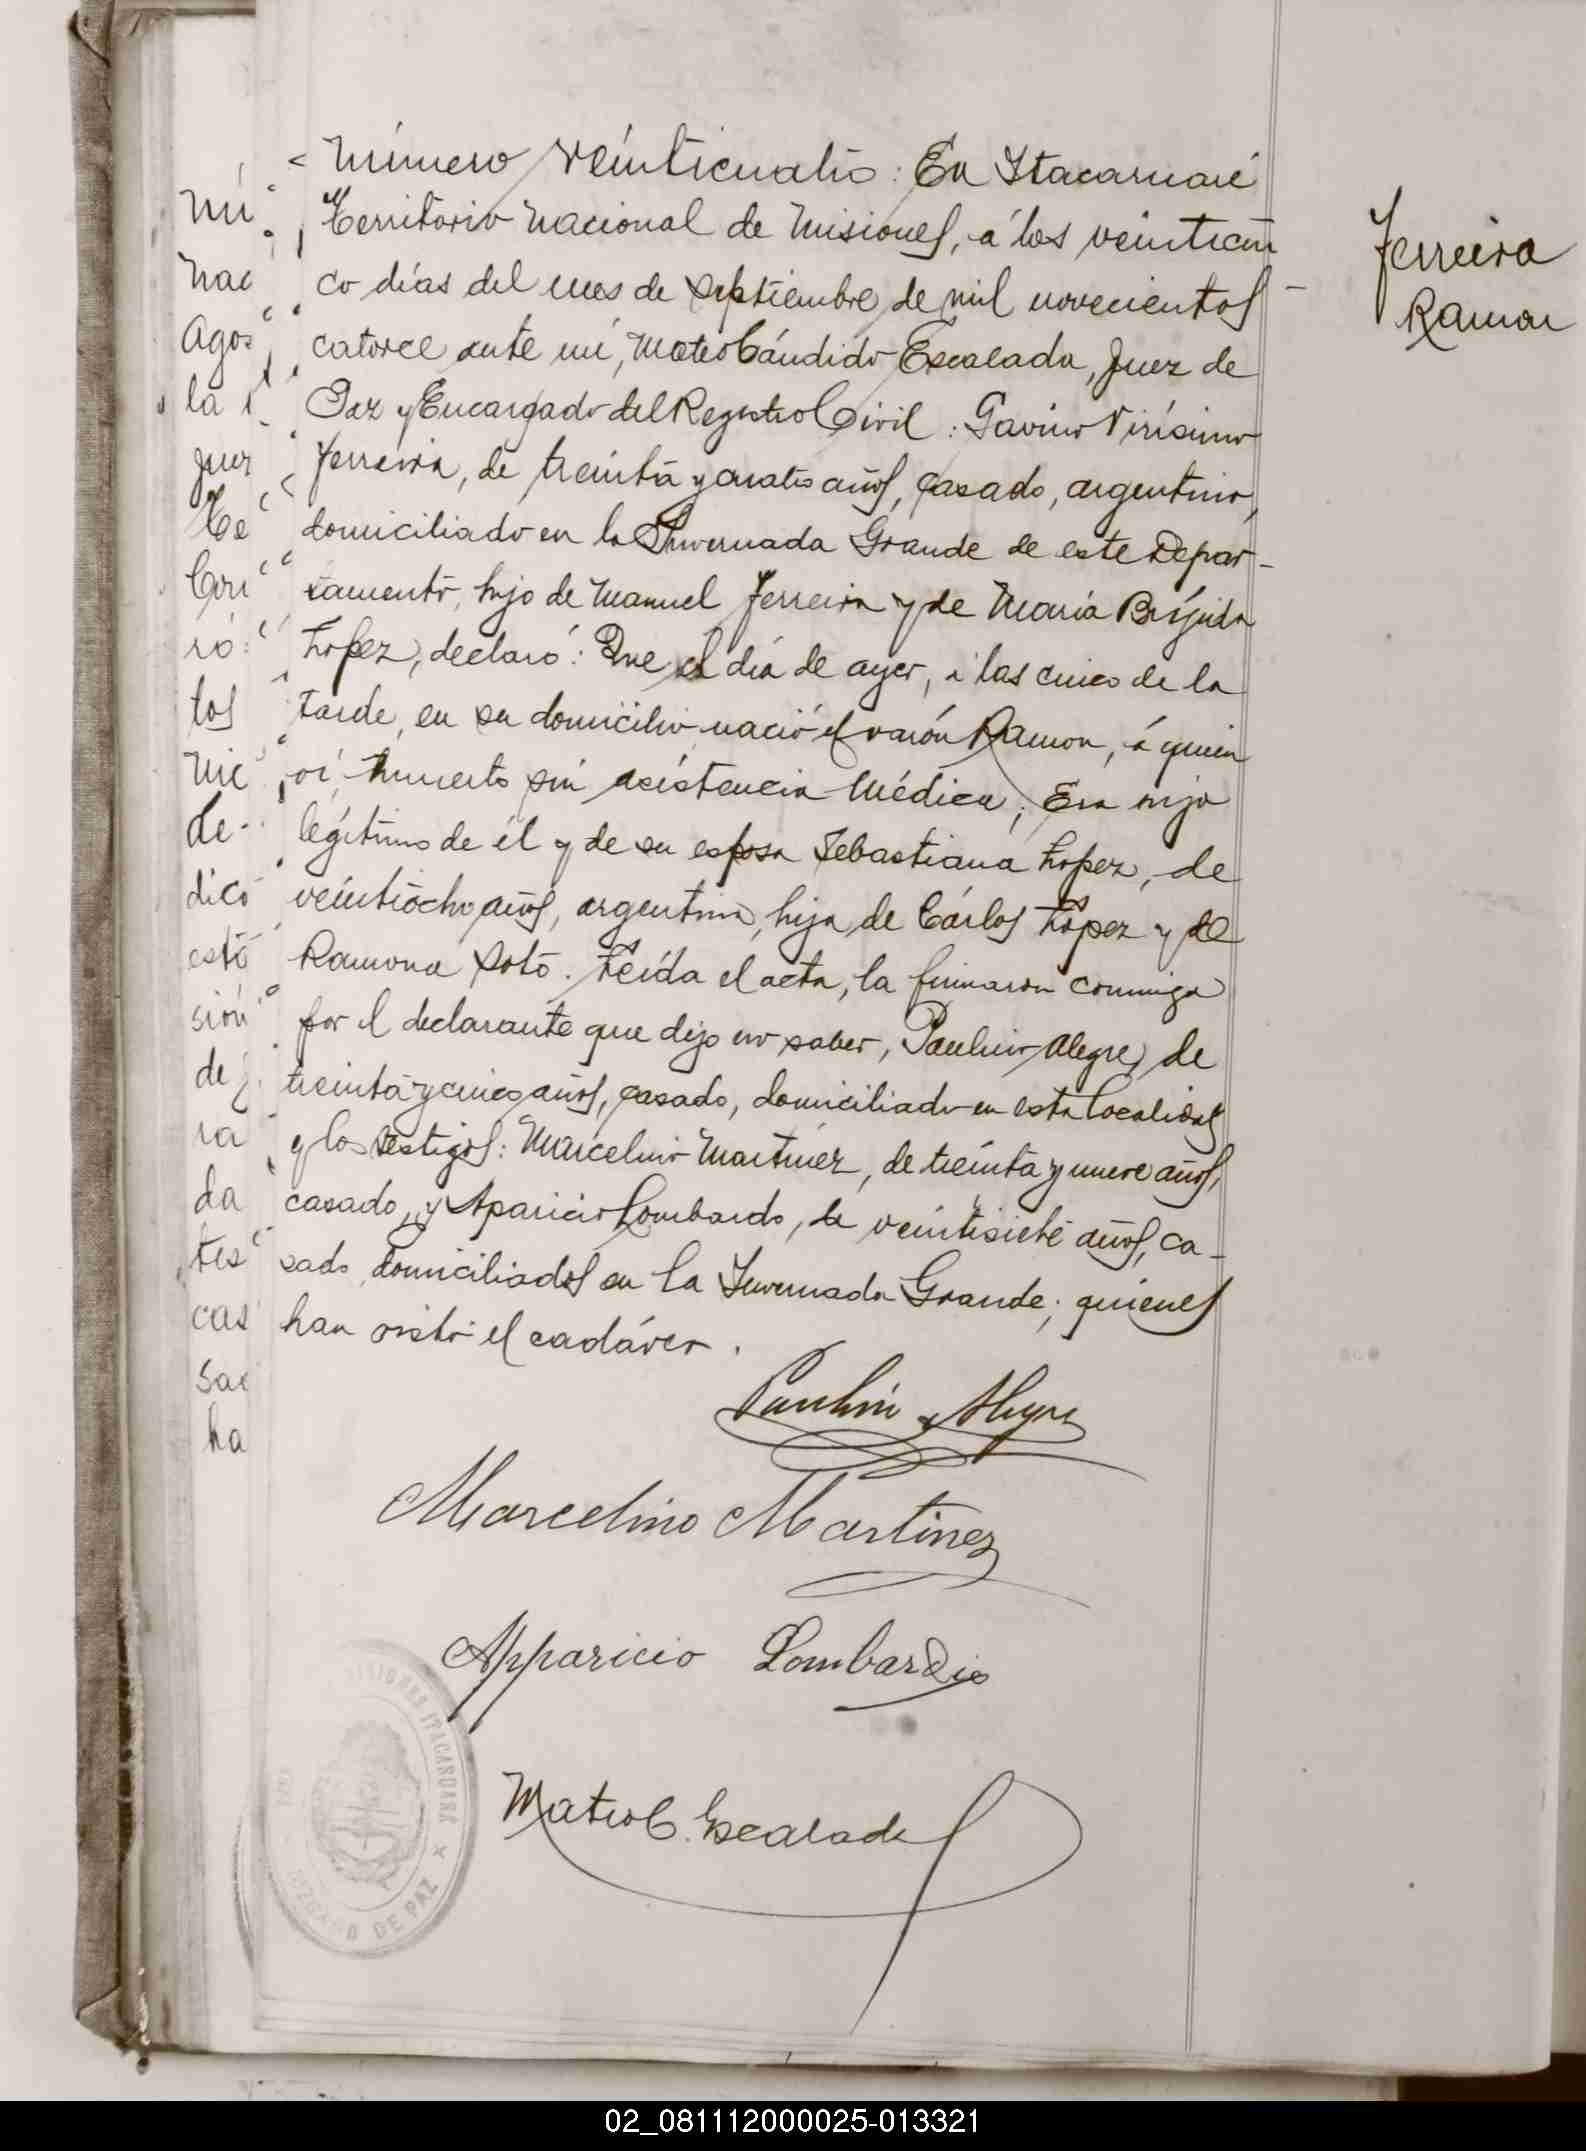 Número veinticuatro: En Itacaruaré
Territorio Nacional de Misiones, á los veinticin
co días del mes de septiembre de mil novecientos
catorce ante mí, Mateo Cándido Escalada, Juez de
Paz y Encargado del Registro Civil: Gavino Virísimo
Ferreira, de treinta y cuatro años, casado, argentino,
domiciliado en la Invernada Grande de este Depar-
tamento, hijo de Manuel Ferreira y de María Brígida
Lopez, declaró: Que el día de ayer, á las cinco de la
tarde, en su domicilio nació el varón Ramon, á quien
ví, muerto sin asistencia médica; Era hijo
legítimo de él y de su esposa Sebastiana Lopez, de
veintiocho años, argentina, hija de Cárlos López y de
Ramona Soto. Leída el acta, la firmaron conmigo
por el declarante que dijo no saber, Paulino Alegre, de
treinta y cinco años, casado, domiciliado en esta localidad
y los testigos: Marcelino Martinez, de treinta y nueve años,
casado, y Aparicio Lombardo, de veintisiete años, ca-
sado, domiciliados en la Invernada Grande; quienes
han visto el cadáver.
Ferreira
Ramon
Nú
nac
Agos
la
juez
Te
ró:
tos
de
dico
está
sión
de
ra
da
tes
cas
sad
ha
Paulino Alegre
Marcelino Martinez
Apparicio Lombardio
Mateo C. Escalada
MISIONES ITACARUARÉ
JUZGADO DE PAZ
02_081112000025-013321